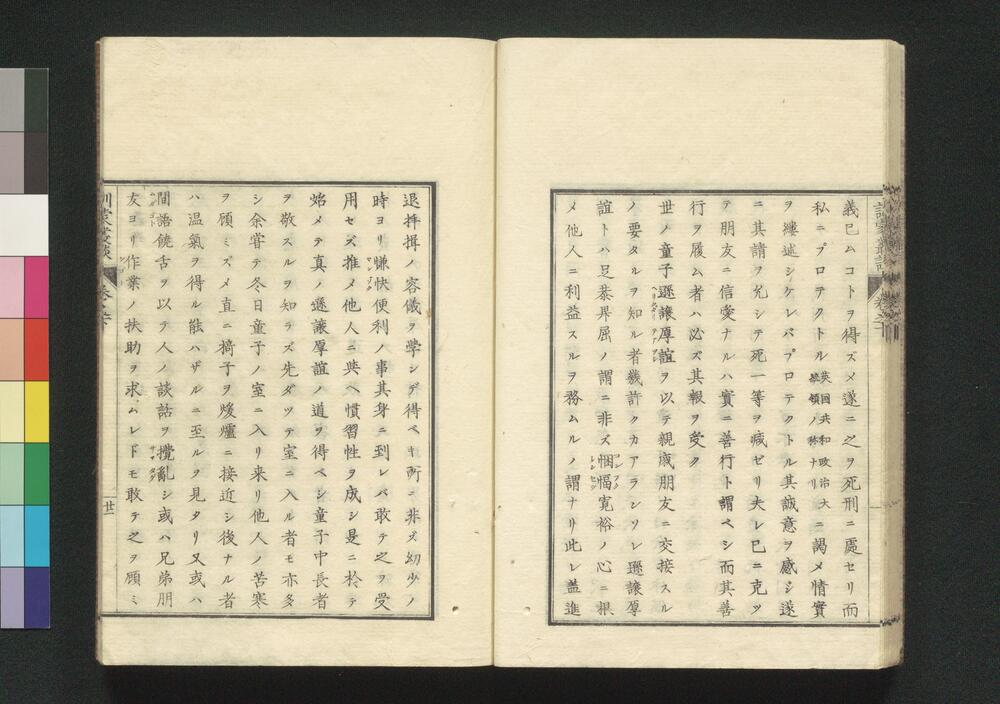 義已ムコトヲ得ズメ遂ニ之ヲ死刑ニ處セリ而
私ニプロテクトル英国共和政治大統領ノ称ナリニ謁メ情實
ヲ縷述シケレバプロテクトル其誠意ヲ感シ遂
ニ其請ヲ允シテ死一等ヲ減ゼリ夫レ已ニ克ツ
テ朋友ニ信愛ナルハ實ニ善行ト謂ベシ而其善
行ヲ履ム者ハ必ズ其報ヲ受ク
世ノ童子遜譲厚誼ヲ以テ親戚朋友ニ交接スル
ノ要タルヲ知ル者幾許クカアランソレ遜譲厚
誼トハ足恭畀屈ノ謂ニ非ズ悃愊寛裕ノ心ニ根
メ他人ニ利益スルヲ務ムルノ謂ナリ此レ蓋進
退拝揖ノ容儀ヲ學ンデ得ベキ所ニ非ズ幼少ノ
時ヨリ嗛快便利ノ事其身ニ到レバ敢テ之ヲ受
用セズ推メ他人ニ與ヘ慣習性ヲ成シ是ニ於テ
始メテ真ノ遜譲厚誼ノ道ヲ得ベシ童子中長者
ヲ敬スルヲ知ラズ先ダツテ室ニ入ル者モ亦多
シ余嘗テ冬日童子ノ室ニ入リ来リ他人ノ苦寒
ヲ顧ミズメ直ニ椅子ヲ煖爐ニ接近シ後ナル者
ハ温氣ヲ得ル能ハザルニ至ルヲ見タリ又或ハ
間語饒舌ヲ以テ人ノ談話ヲ攪亂シ或ハ兄弟朋
友ヨリ作業ノ扶助ヲ求ムレドモ敢テ之ヲ顧ミ
廿一